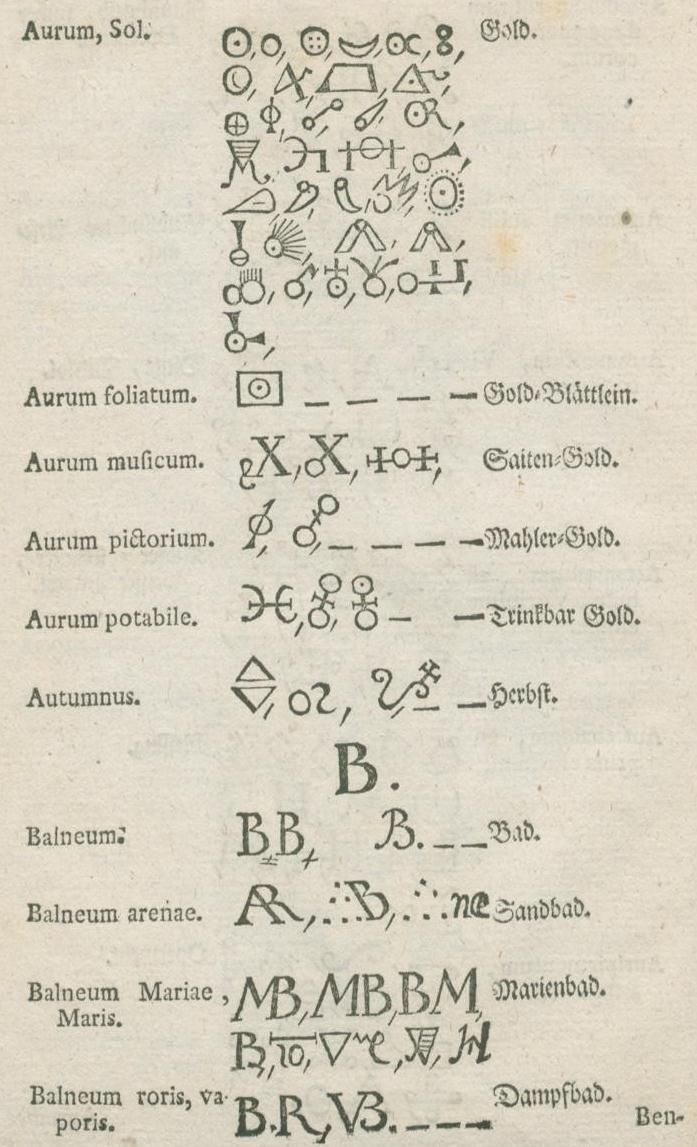 Aurum, Sol. Gold.
Aurum foliatum. Gold⸗Blättlein.
Aurum muſicum. Saiten⸗Gold.
Aurum pictorium. Mahler⸗Gold.
Aurum potabile. Trinkbar Gold.
Autumnus. Herbſt.
B.
Balneum. B, B, B. Bad.
Balneum arenae. Sandbad.
Balneum Mariae, MB, MB, BM, Marienbad.
Maris.
Balneum roris, va- B.R, VB. Dampfbad.
poris. Ben-